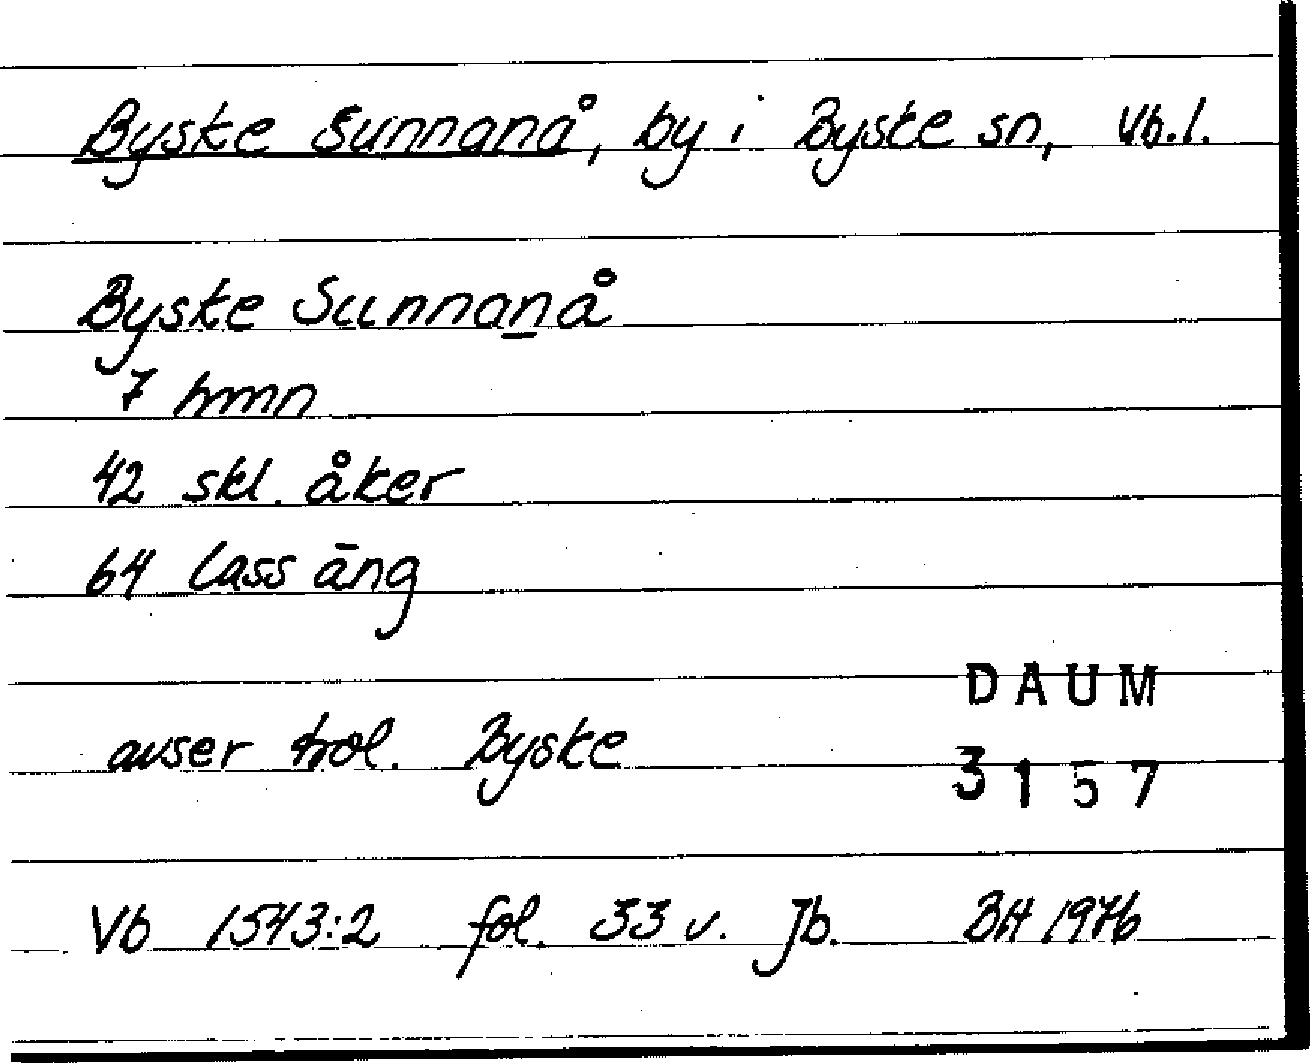 Byske Sunnanå, by i Byske sn, Vb.l.
Byske Sunnanå
7 hmn
42 skl. åker
64 lass äng
DAUM
avser trol. Byske
3157
Vb 1543:2 fol. 33 v. Jb. BH 1976